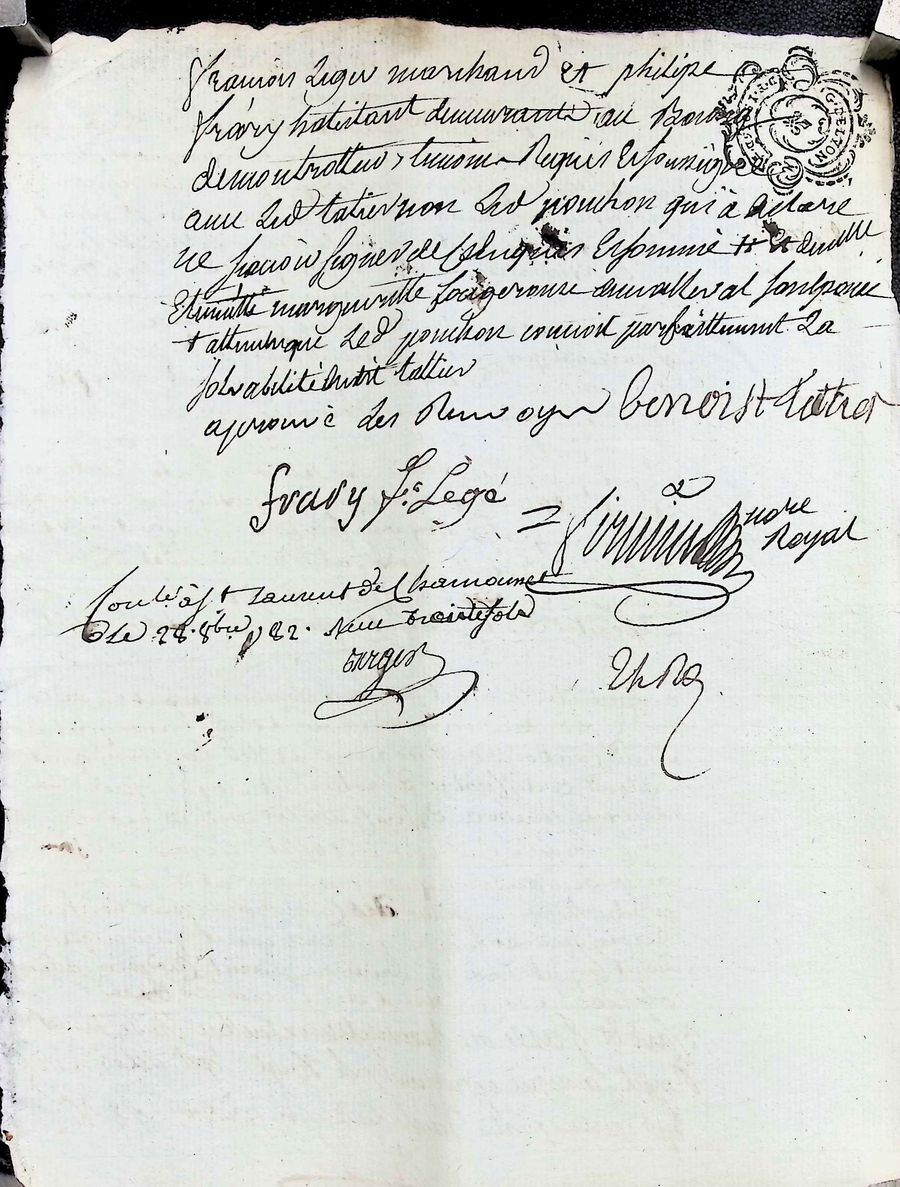 françois Leger marchand et philipe
fravy habitant demeurants au Bourg
demontrottier temoins Requis Et soussignes
avec Led tatier non Led ponchon qui a declaré
ne savoir signer de ce Enquis Et sommé et de
Et marguerite
attendu que Led ponchon connoit parfaittement La
solvabilité dudit tattier
aprouvé Les Renvoyes benoist tattier
fravy f. Legé
nore
Royal
Con.le à st Laurent de Chamousset
Le 28. 8bre 1782. Reçu sols